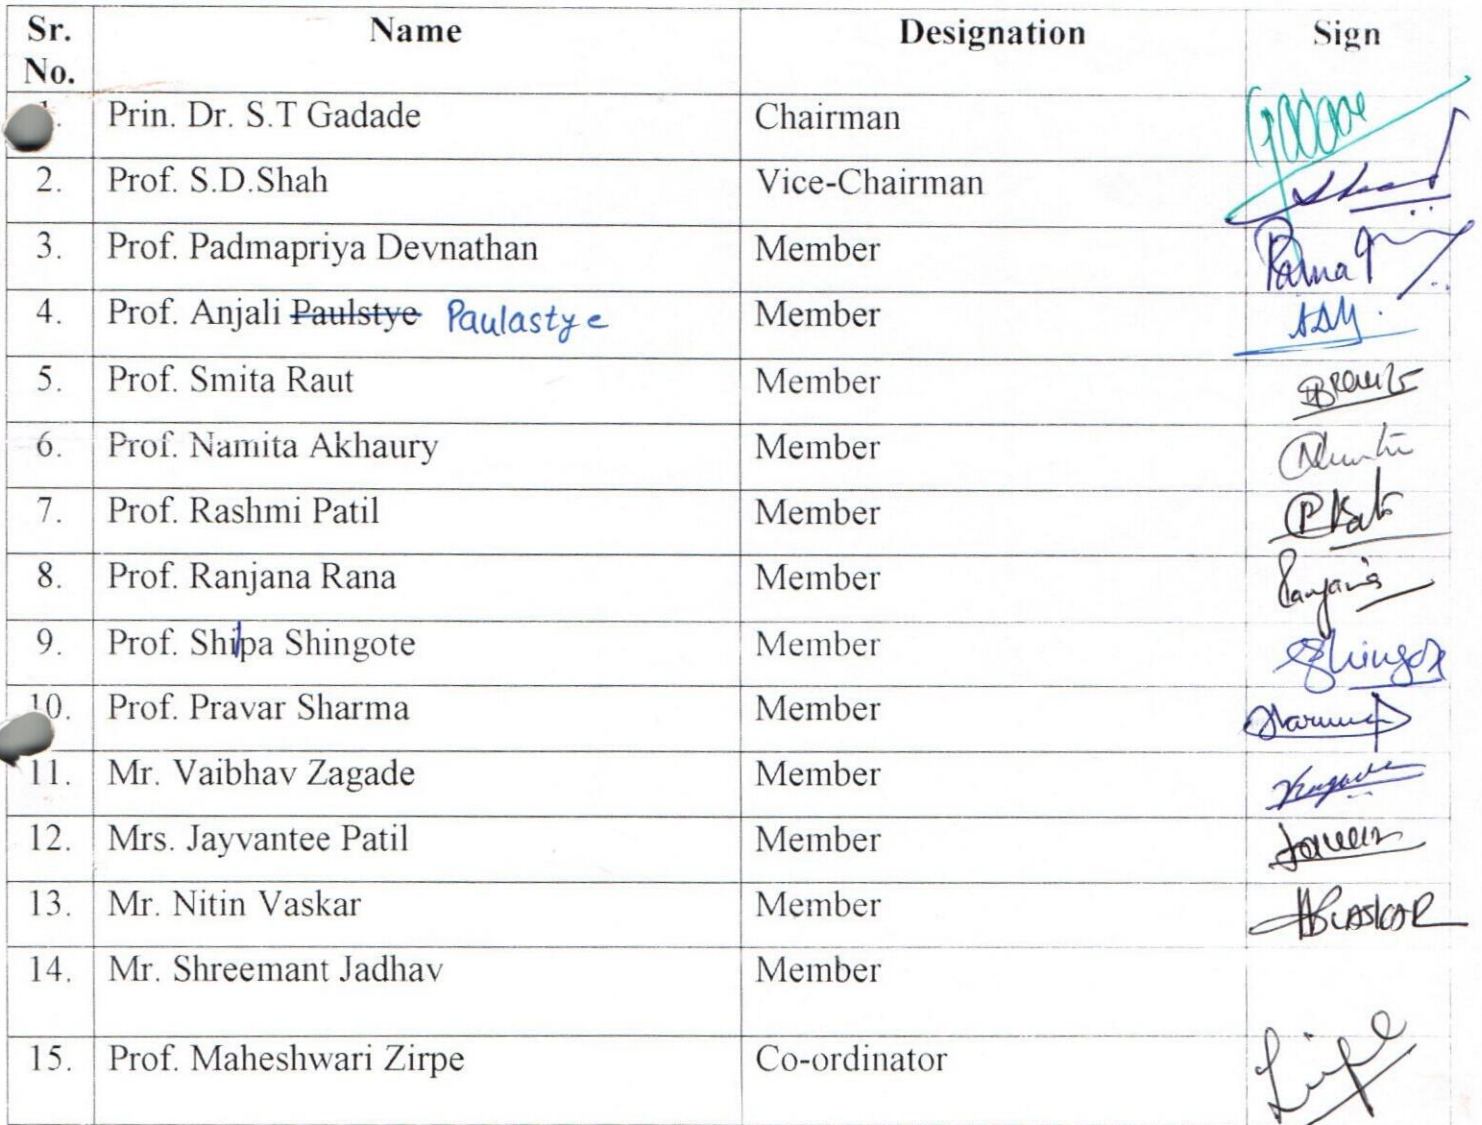 Sr. No. Name Designation Sign
1. Prin. Dr. S.T Gadade Chairman Gadade
2. Prof. S.D.Shah Vice-Chairman
3. Prof. Padmapriya Devnathan Member
4. Prof. Anjali Paulstye Paulastye Member
5. Prof. Smita Raut Member
6. Prof. Namita Akhaury Member
7. Prof. Rashmi Patil Member
8. Prof. Ranjana Rana Member
9. Prof. Shilpa Shingote Member
10. Prof. Pravar Sharma Member
11. Mr. Vaibhav Zagade Member
12. Mrs. Jayvantee Patil Member
13. Mr. Nitin Vaskar Member
14. Mr. Shreemant Jadhav Member
15. Prof. Maheshwari Zirpe Co-ordinator